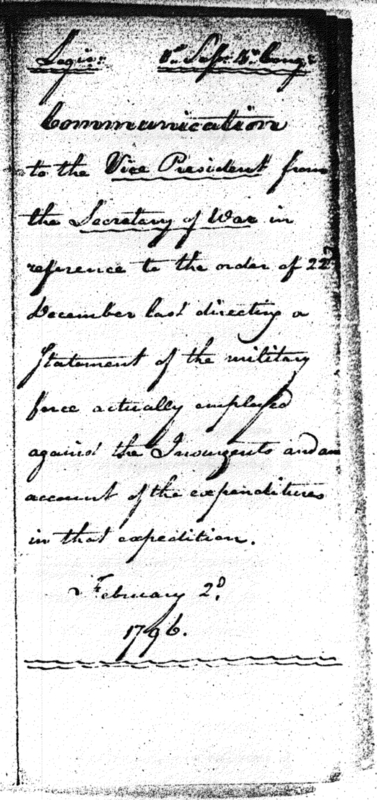 Legis: 1st Sess: 4th Cong:
Communication
to the Vice President from
the Secretary of War in
reference to the order of 22d
December last directing a
Statement of the military
force actually employed
against the Insurgents and an
account of the expenditures
in that expedition.
February 2d.
1796.